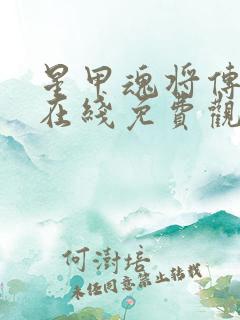 星甲魂将傳
在綫免費觀
何澍培
未经同意禁止转载